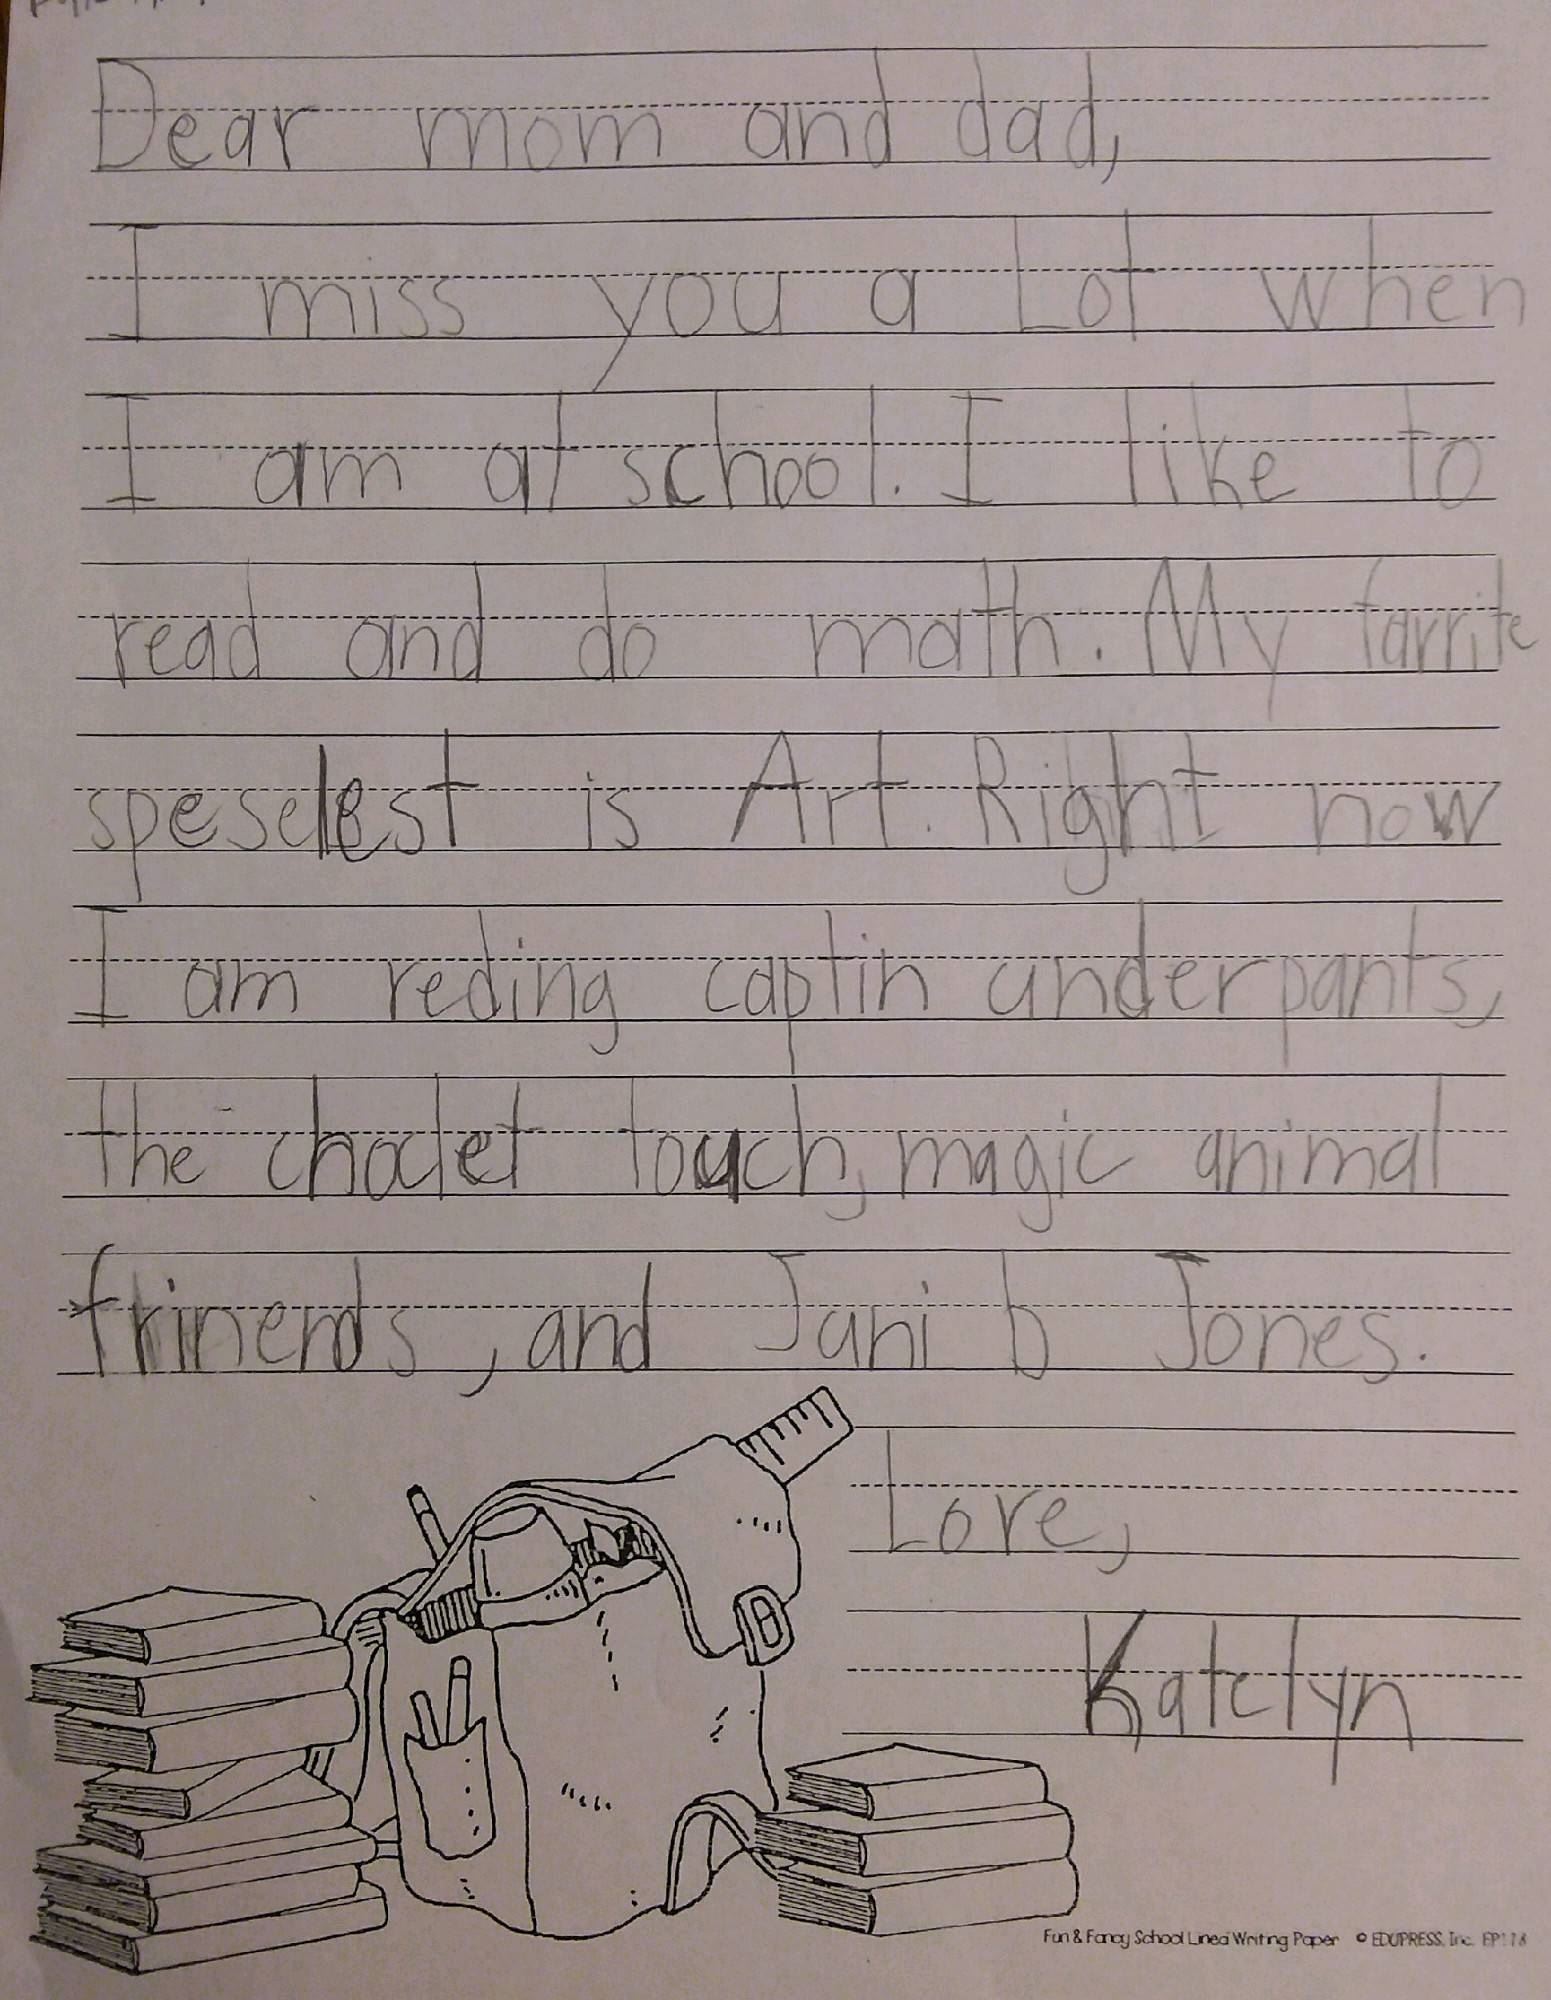 Dear mom and dad,
I miss you a Lot when
I am at school. I like to
read and do math. My favrite
speselest is Art. Right now
I am reding captin underpants,
the choclet touch, magic animal
frinends, and Juni b Jones.
Love,
Katelyn
Fun & Fancy School Lined Writing Paper © EDUPRESS, Inc. EP118